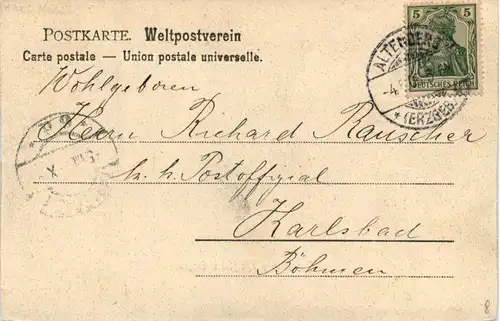 POSTKARTE. Weltpostverein
Carte postale — Union postale universelle.
5 5
DEUTSCHES REICH
ALTENBERG
-4.
* (ERZGEB.
Wohlgeboren
Herrn Richard Rauscher
k. k. Postofficial
Karlsbad
Böhmen
8